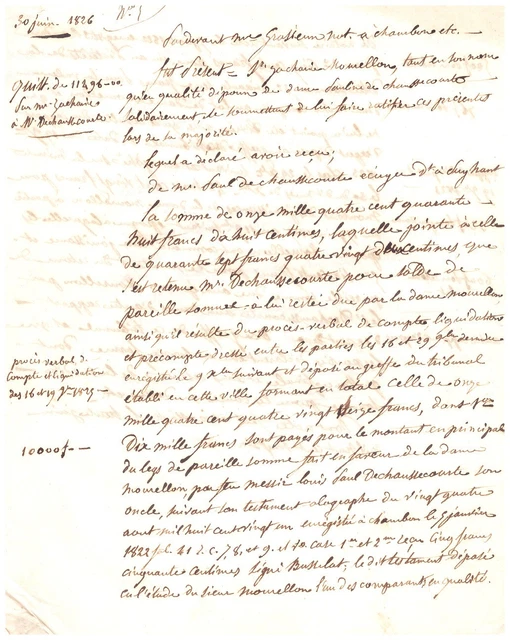 30 juin. 1826
N° 1
Pardevant me Grasseum not. à chambon etc. —
quitt. de 11496-00
par mr zacharie
à Mr Dechaussecourte.
fut Présent = Sr zacharie Nouellon, tant en son nom
qu'en qualité d'époux de dme Pauline de chaussecourte
solidairement, se soumettant de lui faire ratifier ces présentes
lors de sa majorité.
lequel a déclaré avoir reçu;
de mr. Paul de chaussecourte écuyer dt à
la somme de onze mille quatre cent quarante
huit francs dix huit centimes, laquelle jointe à celle
de quarante sept francs quatre vingt deux centimes que
s'est retenu Mr. Dechaussecourte pour solde de
pareille somme à lui restée due par la dame nouellon
ainsi qu'il résulte du procès-verbal de compte, liquidation
et précompte dressé entre les parties les 16 et 29 9bre dernier
enregistré le 9 xbre suivant et déposé au greffe du tribunal
établi en cette ville formant en total celle de onze
mille quatre cent quatre vingt seize francs, dont
procès verbal de
compte et liquidation
des 16 et 29 9bre 1825 —
10000f —
Dix mille francs sont payés pour le montant en principal
du legs de pareille somme fait en faveur de la dame
nouellon, par feu messire louis Paul Dechaussecourte son
oncle, suivant son testament olographe du vingt quatre
aout mil huit cent vingt un enregistré à chambon le 5 janvier
1822 fol. 41 r. c. 7, 8, et 9. et Vo. case 1re et 2me reçu cinq francs
cinquante centimes signé Busselat, le dit testament déposé
en l'étude du sieur nouellon l'un des comparants en qualité.